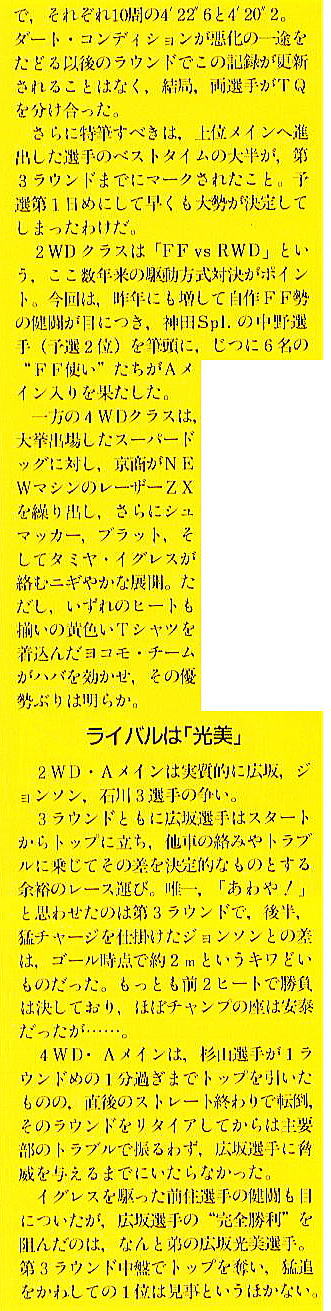 で，それぞれ10周の4′22″6と4′20″2。
ダート・コンディションが悪化の一途を
たどる以後のラウンドでこの記録が更新
されることはなく，結局，両選手がＴＱ
を分け合った。
　さらに特筆すべきは，上位メインへ進
出した選手のベストタイムの大半が，第
３ラウンドまでにマークされたこと。予
選第１日めにして早くも大勢が決定して
しまったわけだ。
　２ＷＤクラスは「ＦＦ vs ＲＷＤ」とい
う，ここ数年来の駆動方式対決がポイン
ト。今回は，昨年にも増して自作ＦＦ勢
の健闘が目につき，神田Spl.の中野選
手（予選２位）を筆頭に，じつに６名の
“ＦＦ使い”たちがＡメ
イン入りを果たした。
　一方の４ＷＤクラスは，
大挙出場したスーパード
ッグに対し，京商がＮＥ
ＷマシンのレーザーＺＸ
を繰り出し，さらにシュ
マッカー，プラット，そ
してタミヤ・イグレスが
絡むニギやかな展開。た
だし，いずれのヒートも
揃いの黄色いＴシャツを
着込んだヨコモ・チーム
がハバを効かせ，その優
勢ぶりは明らか。
ライバルは「光美」
　２ＷＤ・Ａメインは実質的に広坂，ジ
ョンソン，石川３選手の争い。
　３ラウンドともに広坂選手はスタート
からトップに立ち，他車の絡みやトラブ
ルに乗じてその差を決定的なものとする
余裕のレース運び。唯一，「あわや！」
と思わせたのは第３ラウンドで，後半，
猛チャージを仕掛けたジョンソンとの差
は，ゴール時点で約２ｍというキワどい
ものだった。もっとも前２ヒートで勝負
は決しており，ほぼチャンプの座は安泰
だったが……。
　４ＷＤ・Ａメインは，杉山選手が１ラ
ウンドめの１分過ぎまでトップを引いた
ものの，直後のストレート終わりで転倒，
そのラウンドをリタイアしてからは主要
部のトラブルで振るわず，広坂選手に脅
威を与えるまでにいたらなかった。
　イグレスを駆った前住選手の健闘も目
についたが，広坂選手の“完全勝利”を
阻んだのは，なんと弟の広坂光美選手。
第３ラウンド中盤でトップを奪い，猛追
をかわしての１位は見事というほかない。